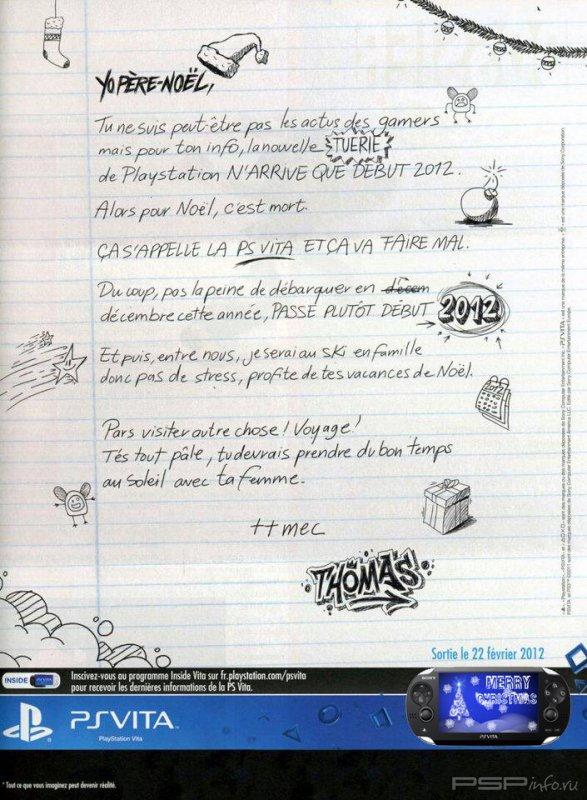 YO PÈRE-NOËL,
Tu ne suis peut-être pas les actus des gamers
mais pour ton info, la nouvelle TUERIE
de Playstation N'ARRIVE QUE DÉBUT 2012.
Alors pour Noël, c'est mort.
ÇA S'APPELLE LA PS VITA ET ÇA VA FAIRE MAL.
Du coup, pas la peine de débarquer en décem
décembre cette année, PASSE PLUTÔT DÉBUT 2012
Et puis, entre nous, je serai au ski en famille
donc pas de stress, profite de tes vacances de Noël.
Pars visiter autre chose ! Voyage !
T'es tout pâle, tu devrais prendre du bon temps
au soleil avec ta femme.
++ mec
THOMAS
Sortie le 22 février 2012
INSIDE
Inscivez-vous au programme Inside Vita sur fr.playstation.com/psvita
pour recevoir les dernières informations de la PS Vita.
SONY
MERRY
CHRISTMAS
PSVITA
PSVITA
PlayStation Vita
*Tout ce que vous imaginez peut devenir réalité.
PSPinfo.ru